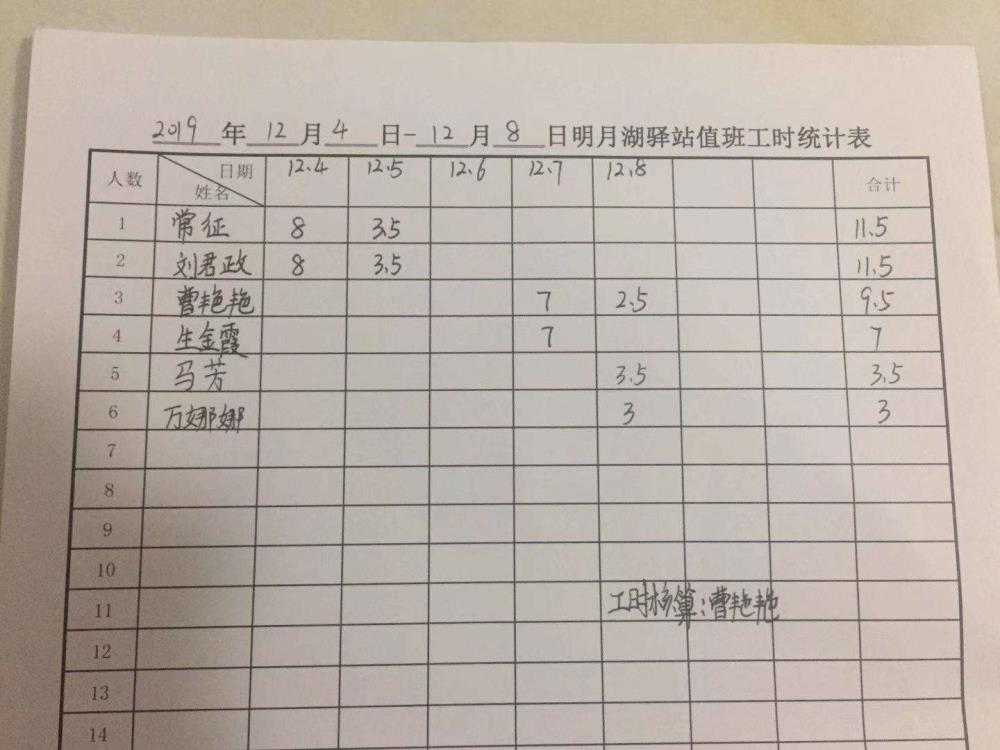 2019 年 12 月 4 日-12 月 8 日明月湖驿站值班工时统计表
人数 日期 姓名 12.4 12.5 12.6 12.7 12.8 合计
1 常征 8 3.5 11.5
2 刘君政 8 3.5 11.5
3 曹艳艳 7 2.5 9.5
4 生金霞 7 7
5 马芳 3.5 3.5
6 万娜娜 3 3
7
8
9
10
11 工时核算:曹艳艳
12
13
14